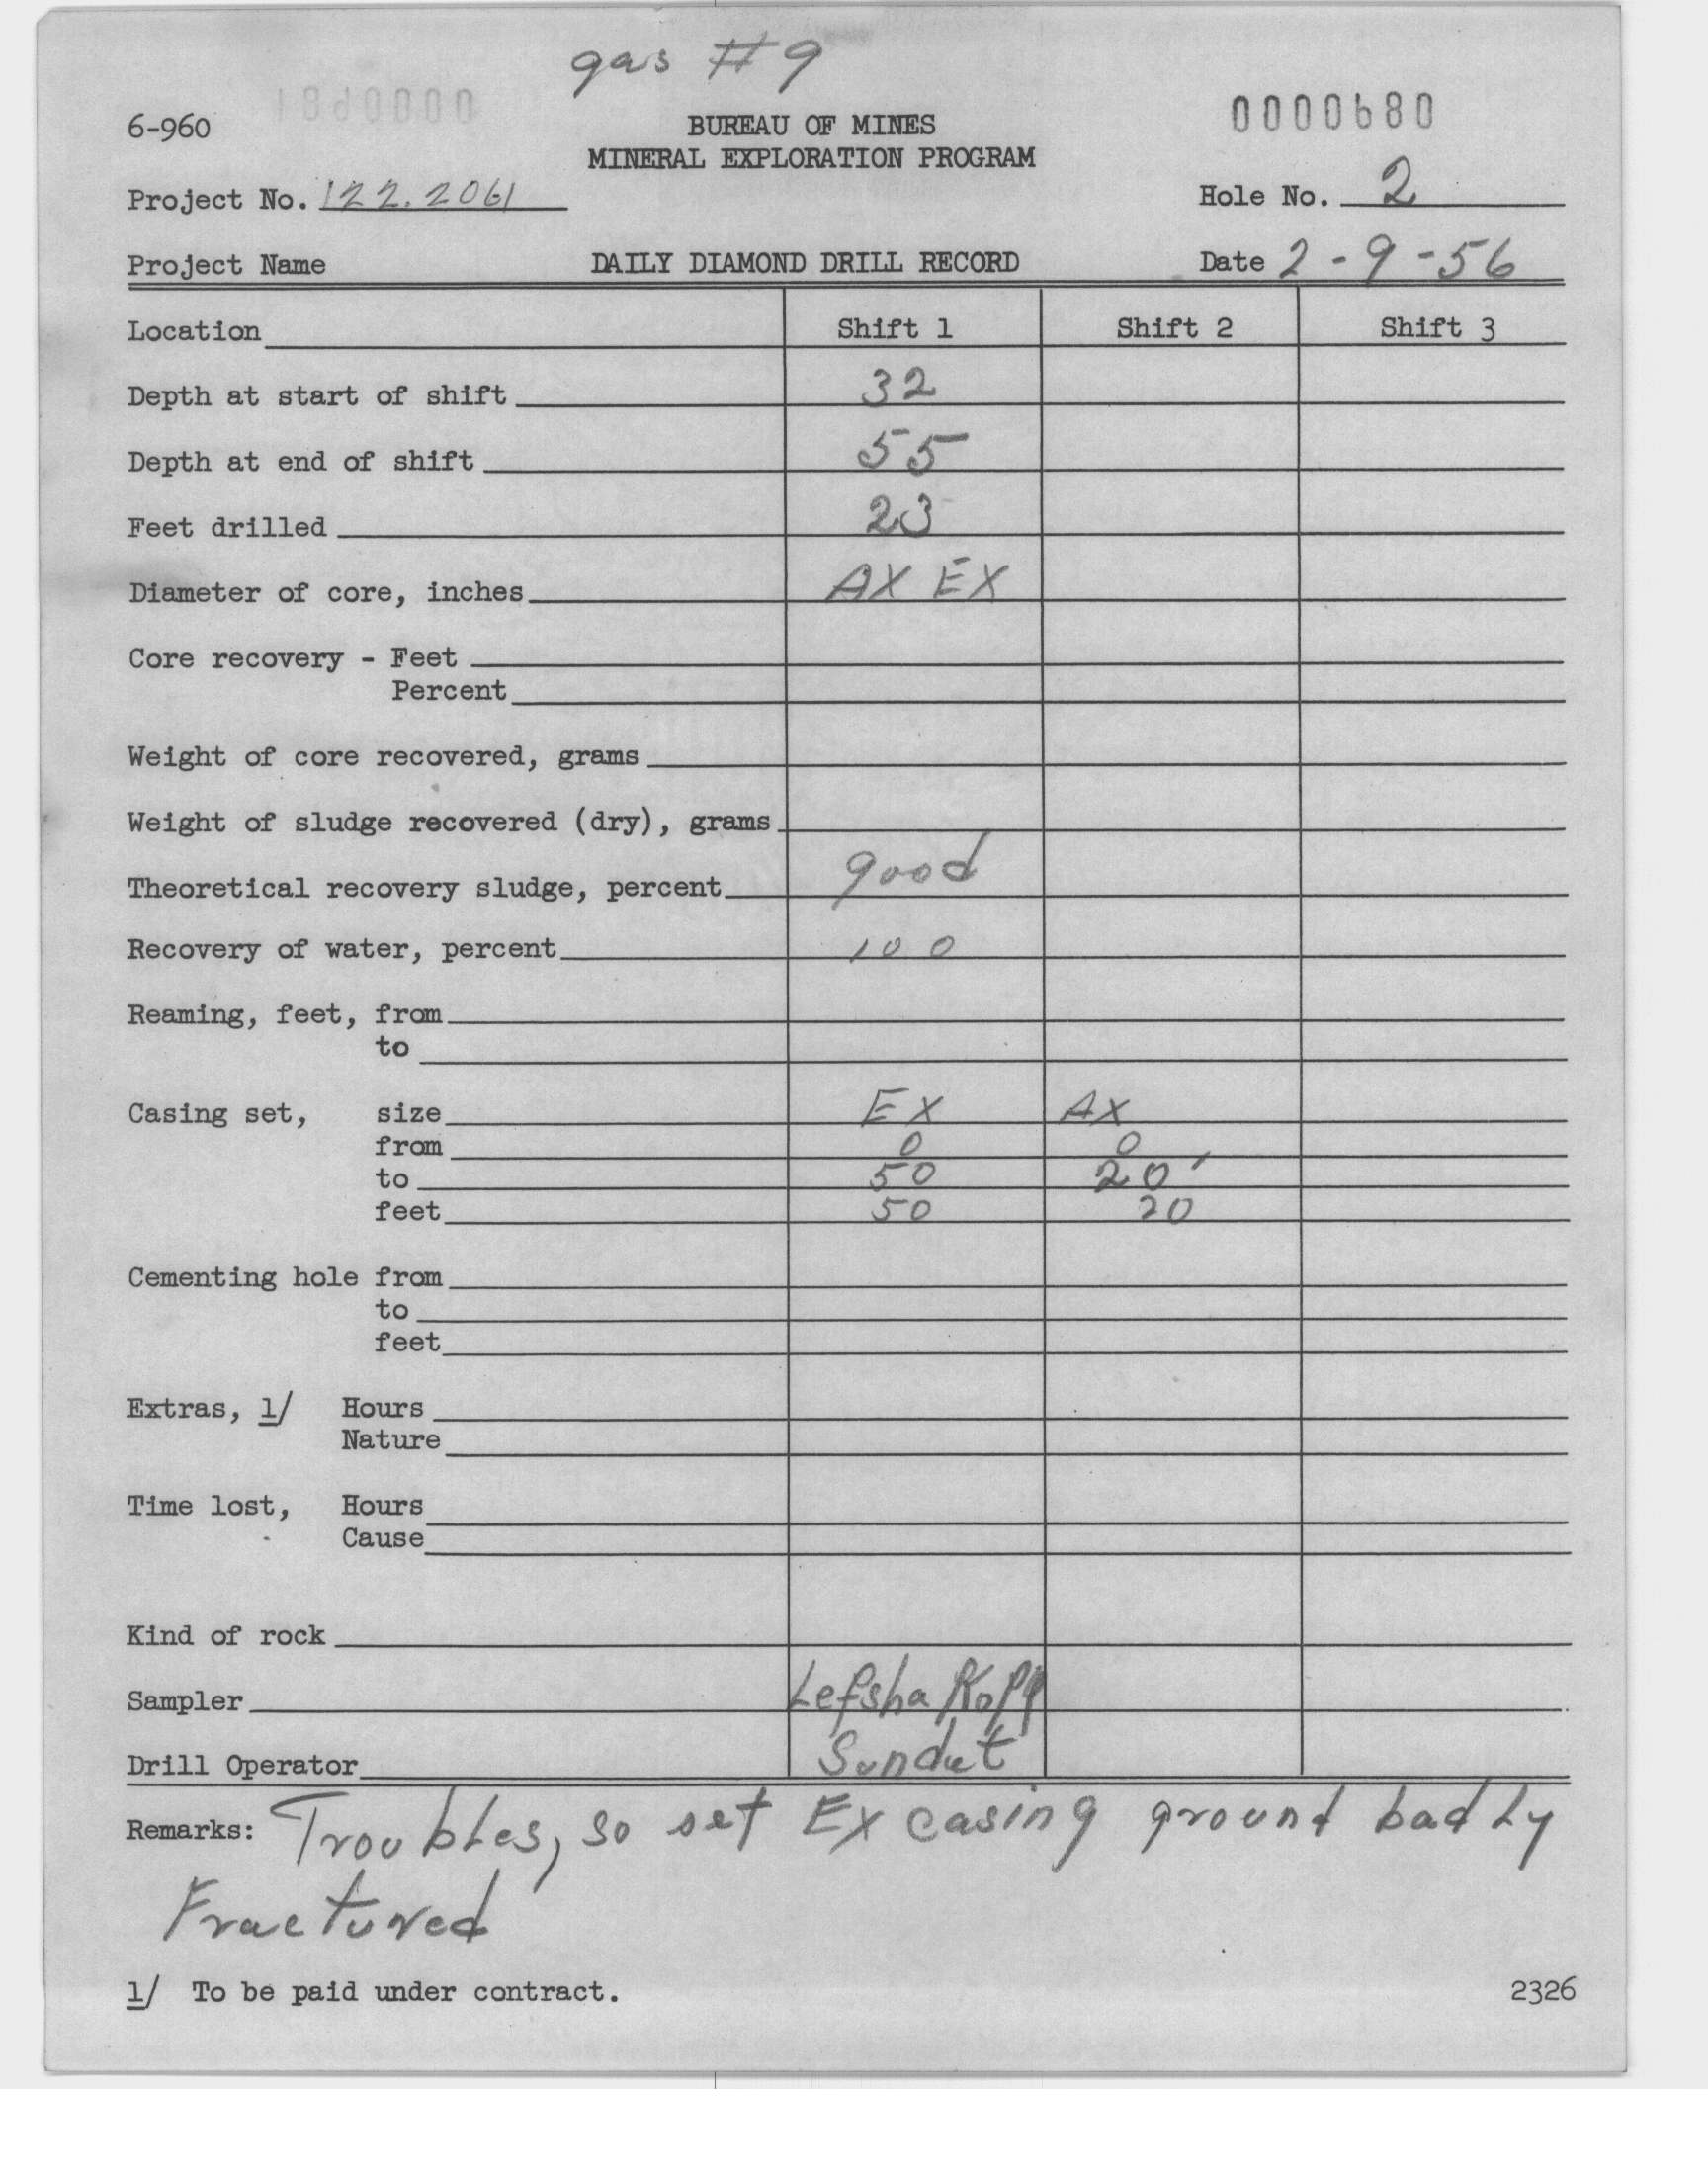 gas #9
6-960
BUREAU OF MINES
0000680
MINERAL EXPLORATION PROGRAM
Project No. 122.2061
Hole No. 2
Project Name DAILY DIAMOND DRILL RECORD Date 2-9-56
Location Shift 1 Shift 2 Shift 3
Depth at start of shift 32
Depth at end of shift 55
Feet drilled 23
Diameter of core, inches AX EX
Core recovery - Feet
Percent
Weight of core recovered, grams
Weight of sludge recovered (dry), grams
Theoretical recovery sludge, percent good
Recovery of water, percent 100
Reaming, feet, from
to
Casing set, size EX AX
from 0 0
to 50 20'
feet 50 20
Cementing hole from
to
feet
Extras, 1/ Hours
Nature
Time lost, Hours
Cause
Kind of rock
Sampler Lefsha Kopp
Drill Operator Sundut
Remarks: Troubles, so set EX casing ground badly
Fractured
1/ To be paid under contract.
2326